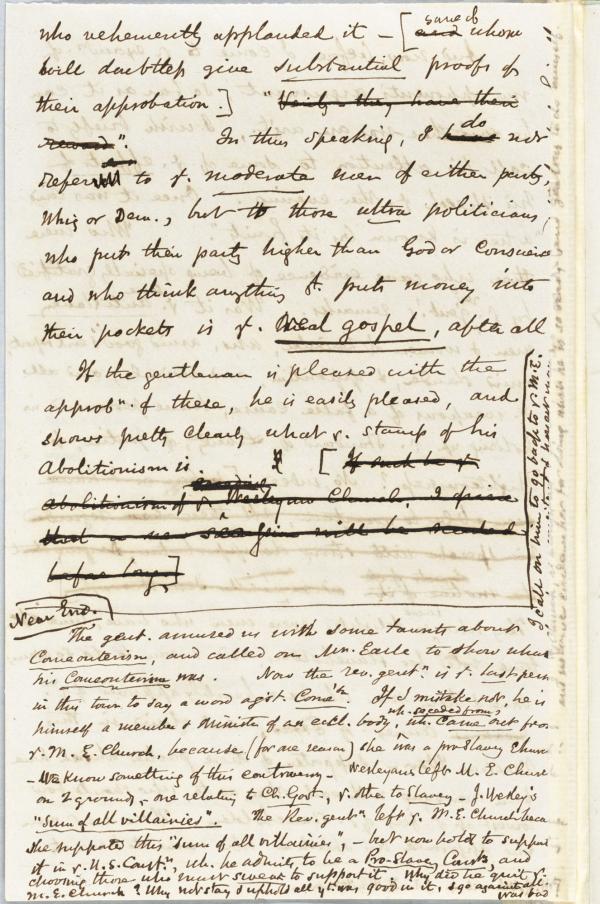 who vehemently applauded it - [ some of and whom
will doubtless give substantial proofs of
their approbation.] "Verily they have their
reward". In thus speaking, I have do not
refer to y. moderate men of either party,
Whig or Dem., but to those ultra politicians,
who put their party higher than God or Conscience
and who think anything yt. puts money into
their pockets is y. real gospel, after all
If the gentleman is pleased with the
approbn. of these, he is easily pleased, and
shows pretty clearly what y. stamp of his
Abolitionism is. [ If such be y.
abolitionism of y. Wesleyan Church, I
that a new will be needed
before long.]
I call on him to go back to y. M. E.
Near End.
The gent. amused us with some taunts about
Comeouterism, and called on Mr. Earle to show what
his Comeouterism was. Now the rev. gentn. is y. last person
in this town to say a word agst. Come'rm If I mistake not, he is
himself a member & Minister of an eccl. body, wh. seceded from, wh. Came out from
y. M. E. Church, because (for one reason) she was a pro-Slavery Church
- We know something of this controversy - Wesleyans left M. E. Church
on 2 grounds, one relating to Ch. Govt., y. other to Slavery - J. Wesley's
"Sum of all villainies". The Rev. gentn. left y. M. E. Church because
she supports this "sum of all villainies", - but now holds to support
it in y. U. S. Constn., wh. he admits to be a Pro-Slavery Const., and
choosing those who must swear to support it. Why did he quit y.
M. E. Church? Why not stay & uphold all yt. was good in it, & go against all
was bad